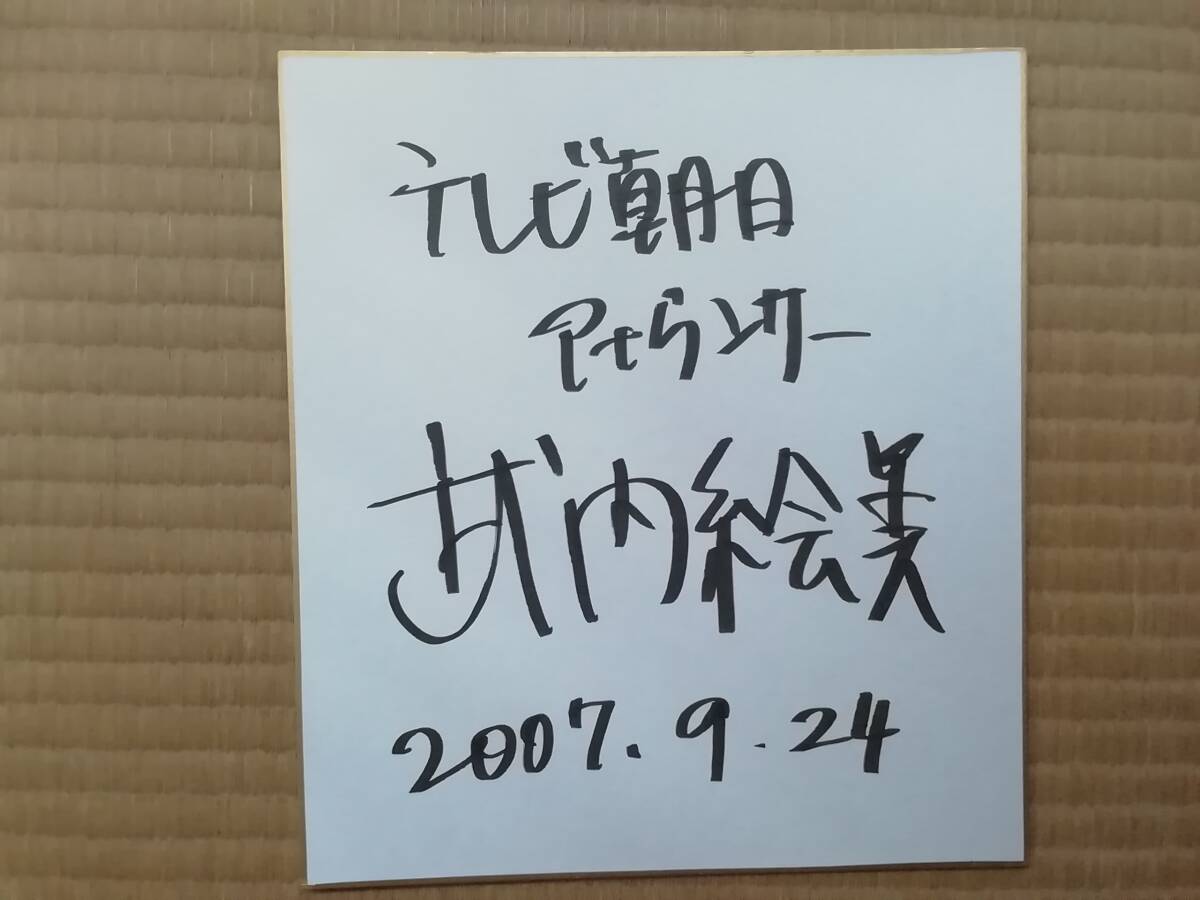 テレビ朝日
アナウンサー
武内絵美
2007.9.24